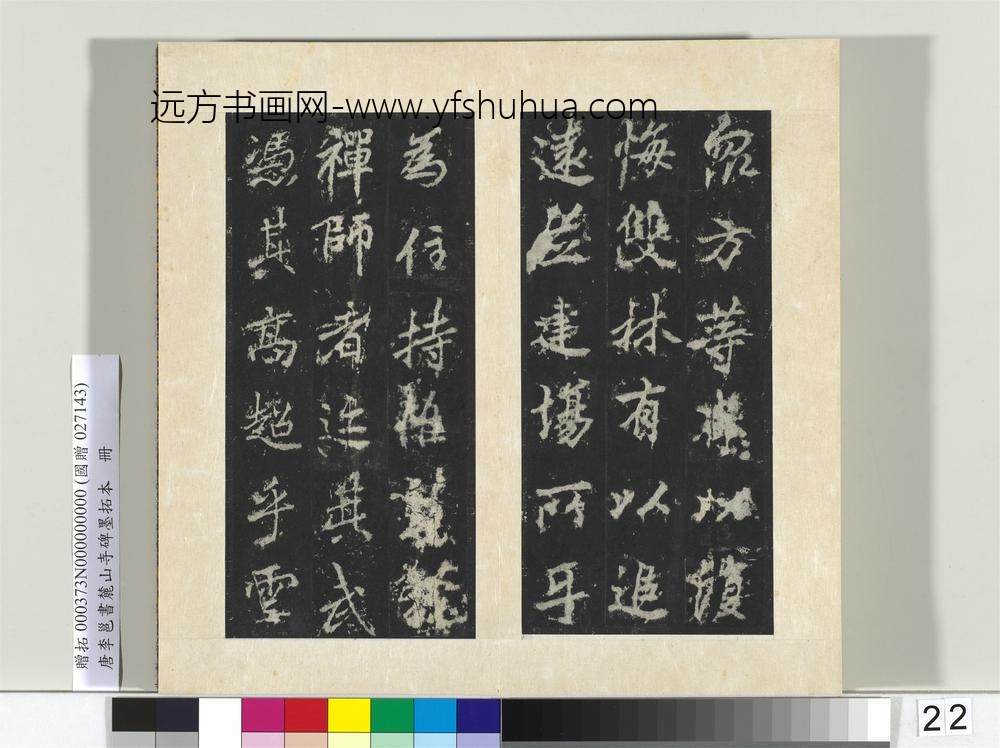 远方书画网-www.yfshuhua.com
泉方等
以
悔雙林有以追
遠
建場所
為住持
禪師者
其武
憑其高超乎雲
贈拓 000373N000000000 (國贈 027143)
唐李邕書麓山寺碑墨拓本 冊
22